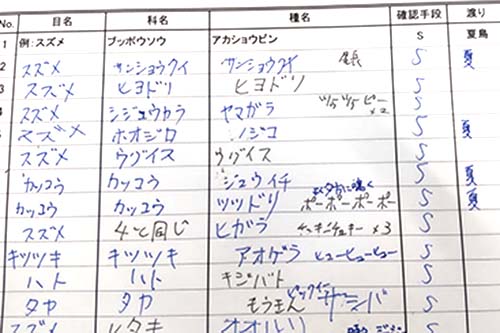 No. 目名 科名 種名 確認手段 渡り
1 例:スズメ ブッポウソウ アカショウビン S 夏鳥
2 スズメ サンショウクイ サンショウクイ S 夏
3 スズメ ヒヨドリ ヒヨドリ S
4 スズメ シジュウカラ ヤマガラ ツツピー ×2 S
スズメ ホオジロ ノジコ S 夏
スズメ ウグイス ウグイス S
カッコウ カッコウ ジュウイチ S 夏
カッコウ カッコウ ツツドリ ポーポーポーポー S 夏
スズメ 4と同じ ヒガラ ×3 S
キツツキ キツツキ アオゲラ ヒューヒューヒュー S
ハト ハト キジバト S
タカ タカ サシバ S
スズメ ヒタキ オオルリ S